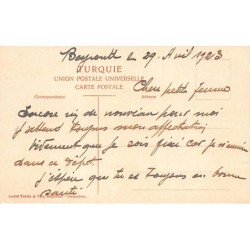 Beyrouth le 29 Avril 1923
TURQUIE
UNION POSTALE UNIVERSELLE
CARTE POSTALE
Correspondance Adresse
Cher petit Jeune
Encore rien de nouveau pour moi
j'attend toujours mon affectation
vivement que je sois fixé car je m'ennuie
dans ce dépôt.
j'espère que tu es toujours en bonne
santé